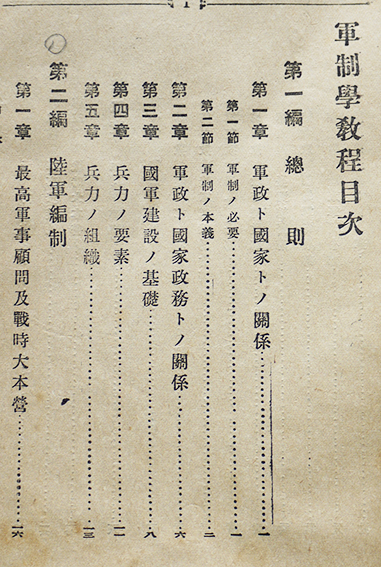 軍制學教程目次
第一編 總則
第一章 軍政ト國家トノ關係…………一
第一節 軍制ノ必要…………一
第二節 軍制ノ本義…………二
第二章 軍政ト國家政務トノ關係…………六
第三章 國軍建設ノ基礎…………八
第四章 兵力ノ要素…………一一
第五章 兵力ノ組織…………一三
第二編 陸軍編制
第一章 最高軍事顧問及戰時大本營…………一六